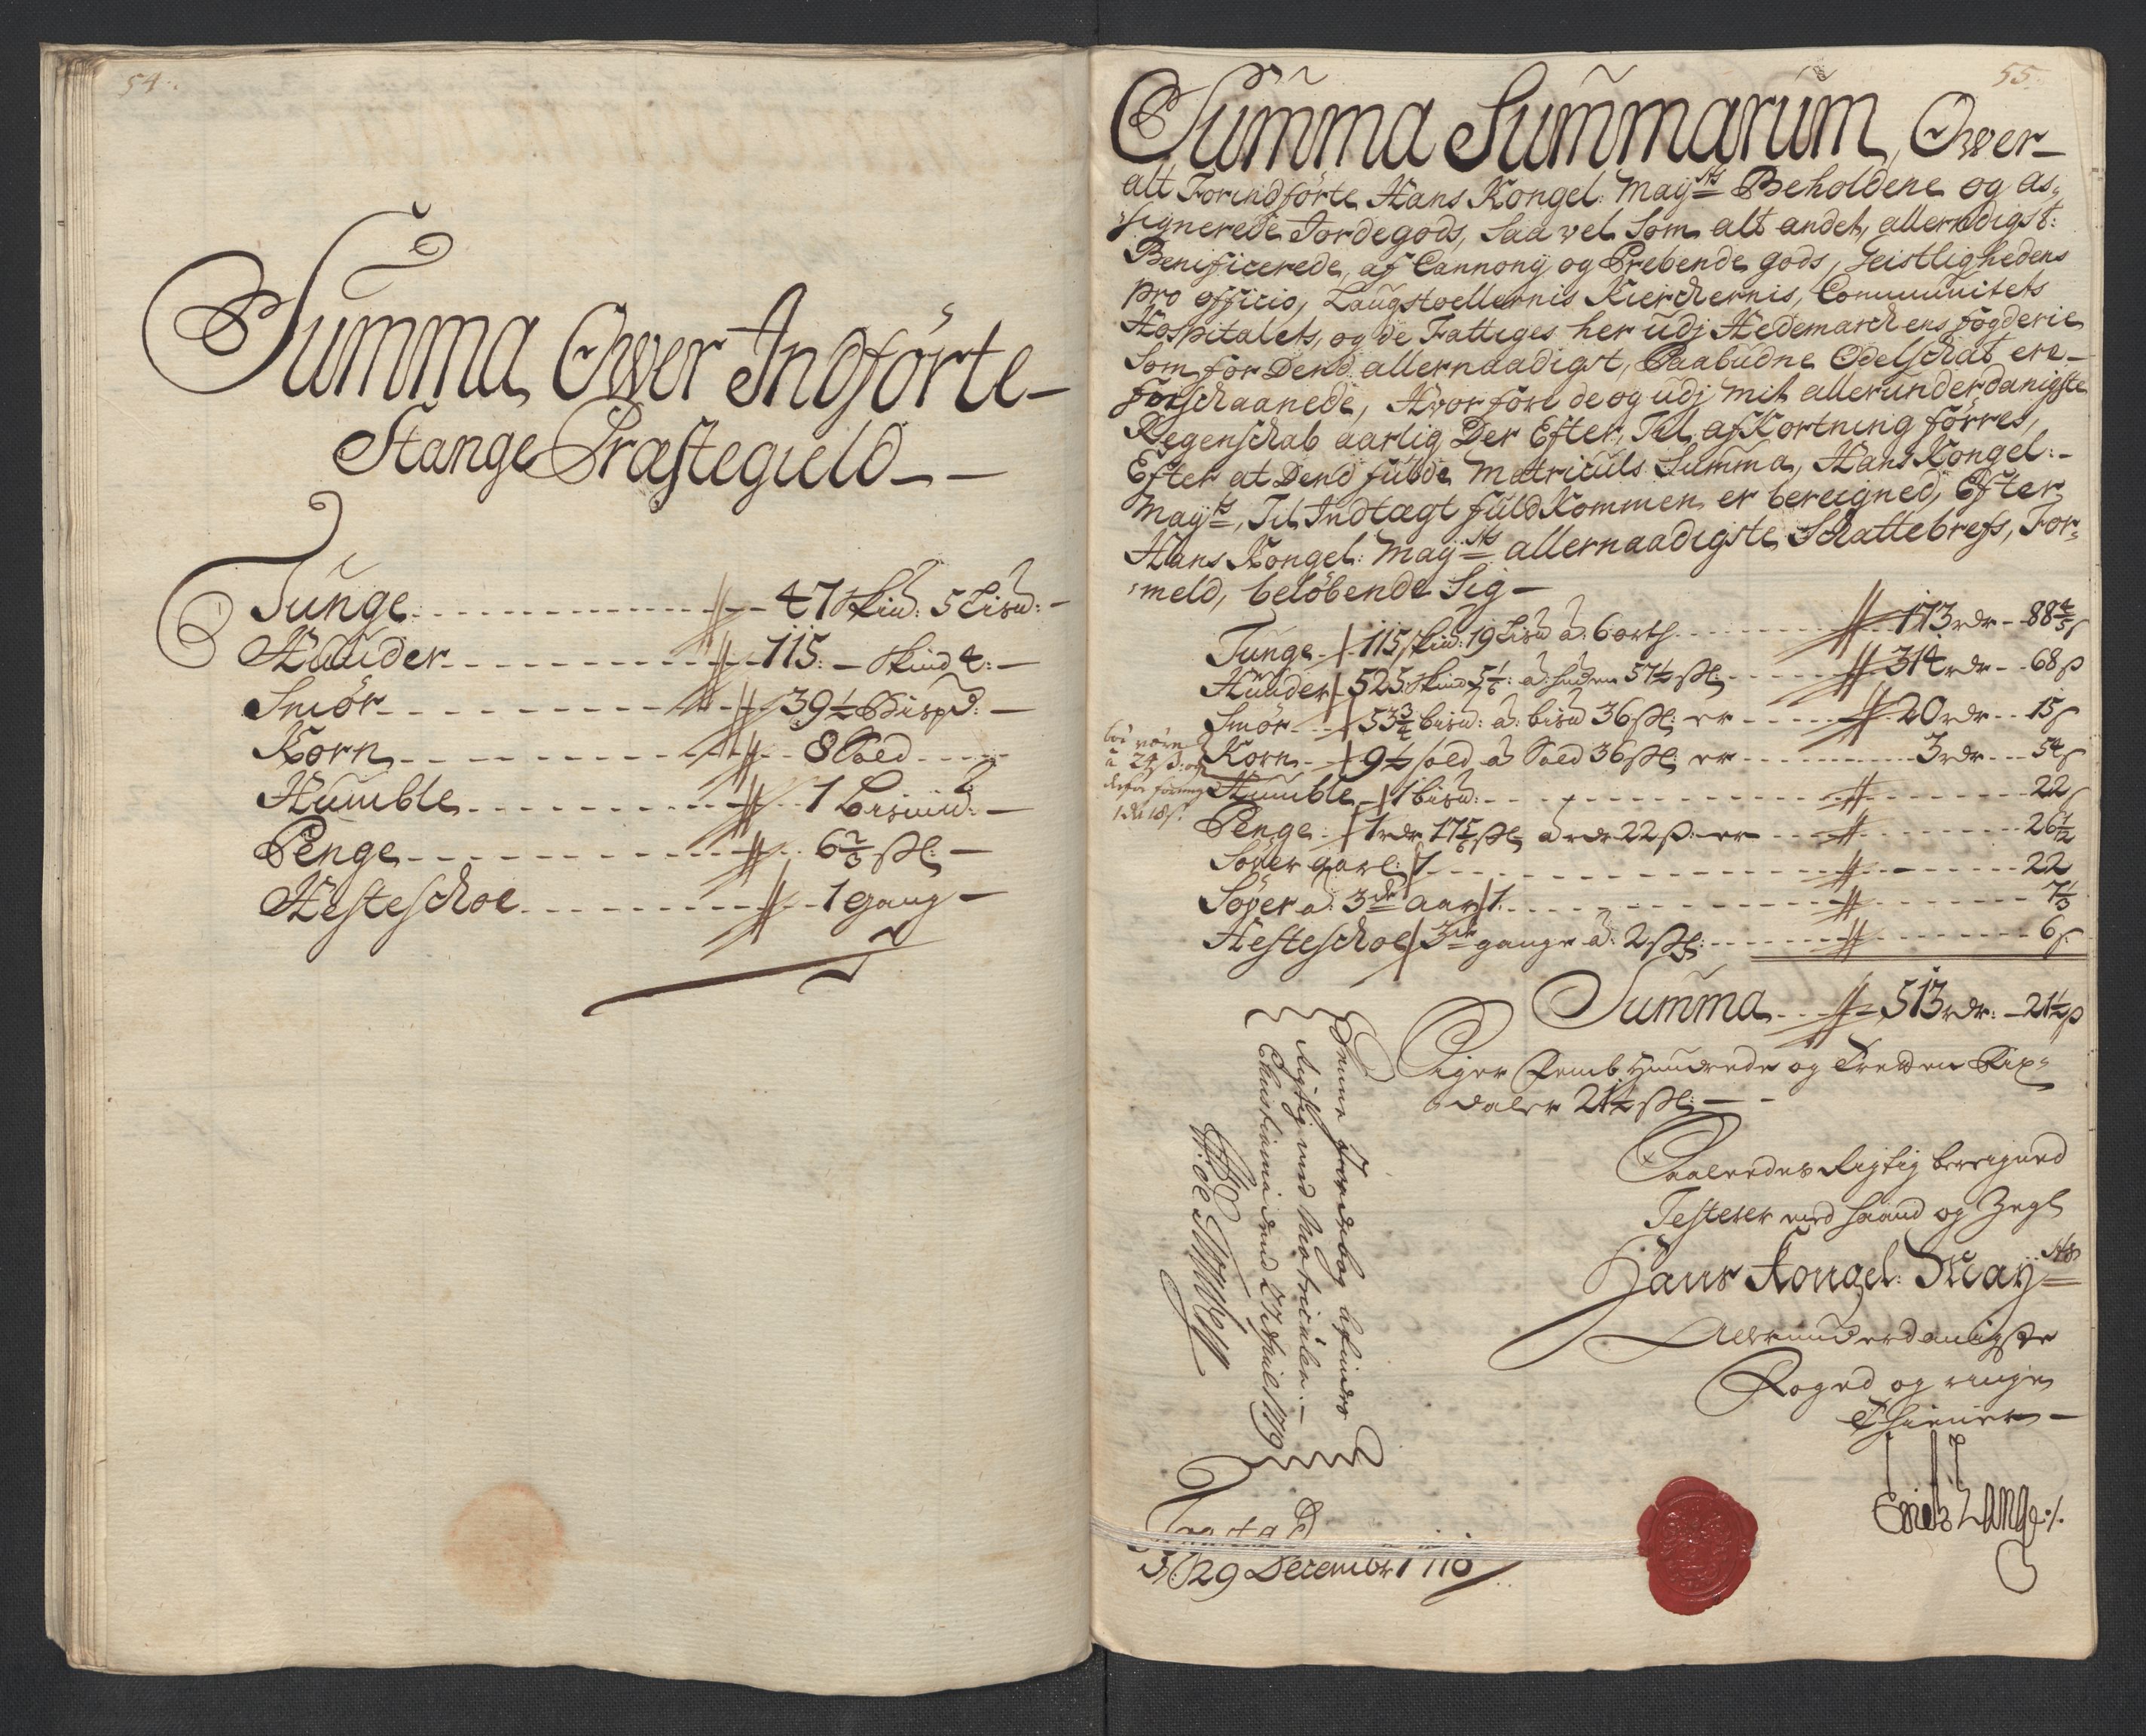 54.
Summa Ower Indförte
Stange Præstegield
Tunge 47 Skind: 5 Lisd:
Huuder 115. Skind 4:
Smör 39½ Bispd:
Korn 8 Sold
Humble 1 Bismd:
Penge 6⅔ sk:
Hesteschoe 1 gang
55.
Summa Summarum, Ower
alt Forindförte Hans Kongel: Mayts Beholdene og as-
signerede Jordegods, Saa vel Som alt andet, allernadigst:
Benificerede, af Cannonj og Prebende gods, Geistlighedens
pro officio, Laugstoellernis Kierchernis, Communitets
Hospitalets, og de Fattiges her udj Hedemarchens fogderie
Som for Dend allernaadigst, Paabudne Odelschat ere
forschaanede, Hvorfore de og udj mit allerunderdanigste
Regenschab aarlig Der Efter, Til afkortning förres,
Efter at Dend fulde Matriculs Summa, Hans Kongel:
Mayts, Til Indtægt fuldkommen er bereigned, Efter
Hans Kongel: Mayts allernaadigste Schattebrefs, For-
meld, belöbende Sig
Tunge 115 skind: 19 Lisd à 6 orth 173 rdr 88⅘ s
Huuder 525 Skind 5⅙: à huden 57½ sk: 314 rdr 68 s
Smör 53¾ bisd: à bisd 36 sk: er 20 rdr 15 s
Korn 9½ sold à Sold 36 sk: er 3 rdr 54 s
Humble 1 bisd: 22 s
Penge 1 rdr 17⅚ sk à rdr 22 s: er 26½
Sover aarl: 1 22
Söver à 3de aar 1. 7⅓
Hesteschoe 3de gange à 2 sk: 6 s
Summa 513 rdr: 21½ s
Siger Femb Hundrede og Tretten Rix-
daler 21½ sk:
Saaledes Rigtig bereigned
Testerer med haand og Zegl
Hans Kongel: Mayts
Allerunderdanigste
Foged og ringe
Thiener
Erich Lange
Denne Jordebog befindes
Rigtig med Matriculen.
Christiania dend 27 April 1719
29 December 1718